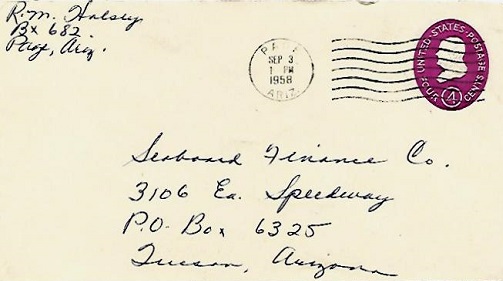 R.M. Halsey
Bx 682
Ariz.
SEP 3
1 PM
1958
ARIZ.
UNITED·STATES·POSTAGE
FOUR 4 CENTS
Seaboard Finance Co.
3106 Ea. Speedway
P.O. Box 6325
Tucson, Arizona